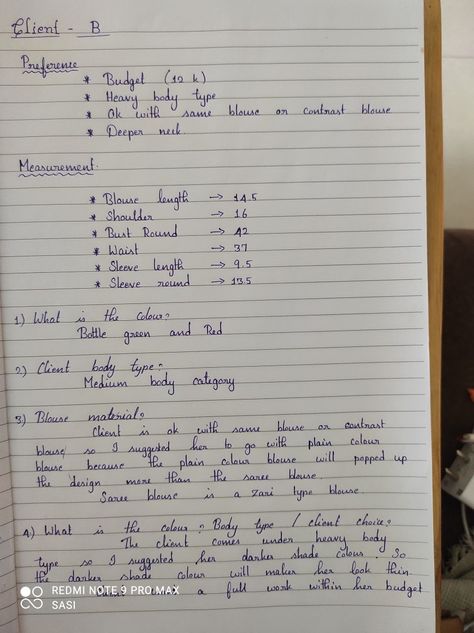 Client - B
Preference
* Budget (12 k)
* Heavy body type
* Ok with same blouse or contrast blouse
* Deeper neck.
Measurement:
* Blouse length → 14.5
* Shoulder → 16
* Bust Round → 42
* Waist → 37
* Sleeve length → 9.5
* Sleeve round → 13.5
1) What is the colour?
Bottle green and Red
2) Client body type?
Medium body category
3) Blouse material?
Client is ok with same blouse or contrast
blouse so I suggested her to go with plain colour
blouse because the plain colour blouse will popped up
the design more than the saree blouse.
Saree blouse is a zari type blouse.
4) What is the colour? Body type / client choice?
The client comes under heavy body
type so I suggested her darker shade colour. So
the darker shade colour will make her look thin.
a full work within her budget
REDMI NOTE 9 PRO MAX
SASI